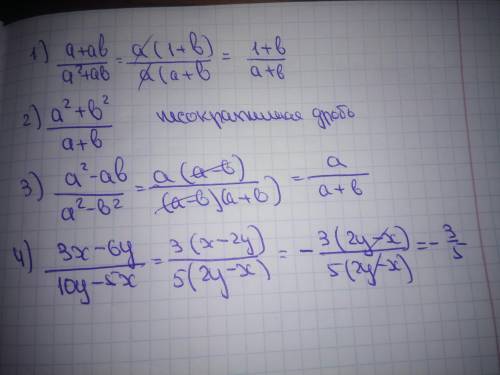 1) (a+ab)/(a²+ab) = a(1+b)/(a(a+b) = (1+b)/(a+b)
2) (a²+b²)/(a+b) несократимая дробь
3) (a²-ab)/(a²-b²) = a(a-b)/((a-b)(a+b)) = a/(a+b)
4) (3x-6y)/(10y-5x) = 3(x-2y)/(5(2y-x)) = -3(2y-x)/(5(2y-x)) = -3/5